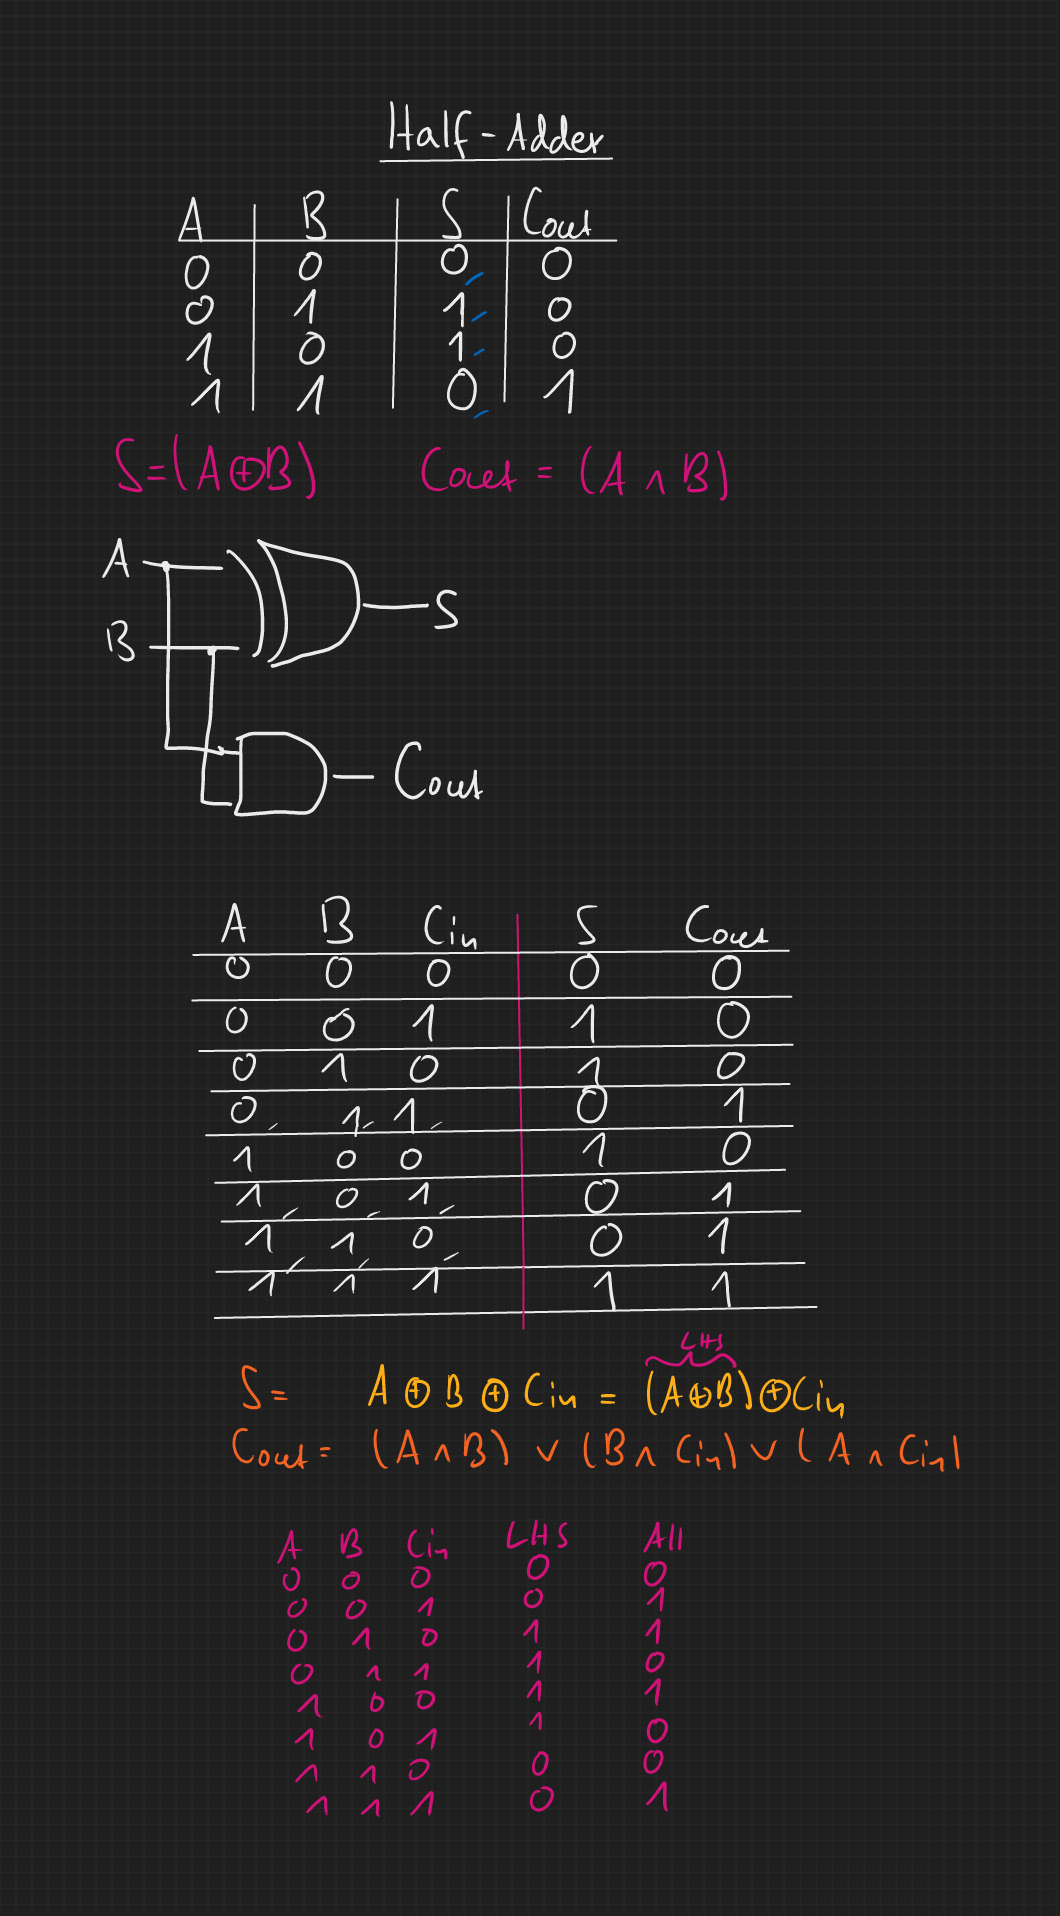 Half-Adder
A B S Cout
0 0 0 0
0 1 1 0
1 0 1 0
1 1 0 1
S=(A⊕B) Cout = (A ∧ B)
A
S
B
Cout
A B Cin S Cout
0 0 0 0 0
0 0 1 1 0
0 1 0 1 0
0 1 1 0 1
1 0 0 1 0
1 0 1 0 1
1 1 0 0 1
1 1 1 1 1
LHS
S= A ⊕ B ⊕ Cin = (A⊕B)⊕Cin
Cout = (A ∧ B) ∨ (B ∧ Cin) ∨ (A ∧ Cin)
A B Cin LHS All
0 0 0 0 0
0 0 1 0 1
0 1 0 1 1
0 1 1 1 0
1 0 0 1 1
1 0 1 1 0
1 1 0 0 0
1 1 1 0 1